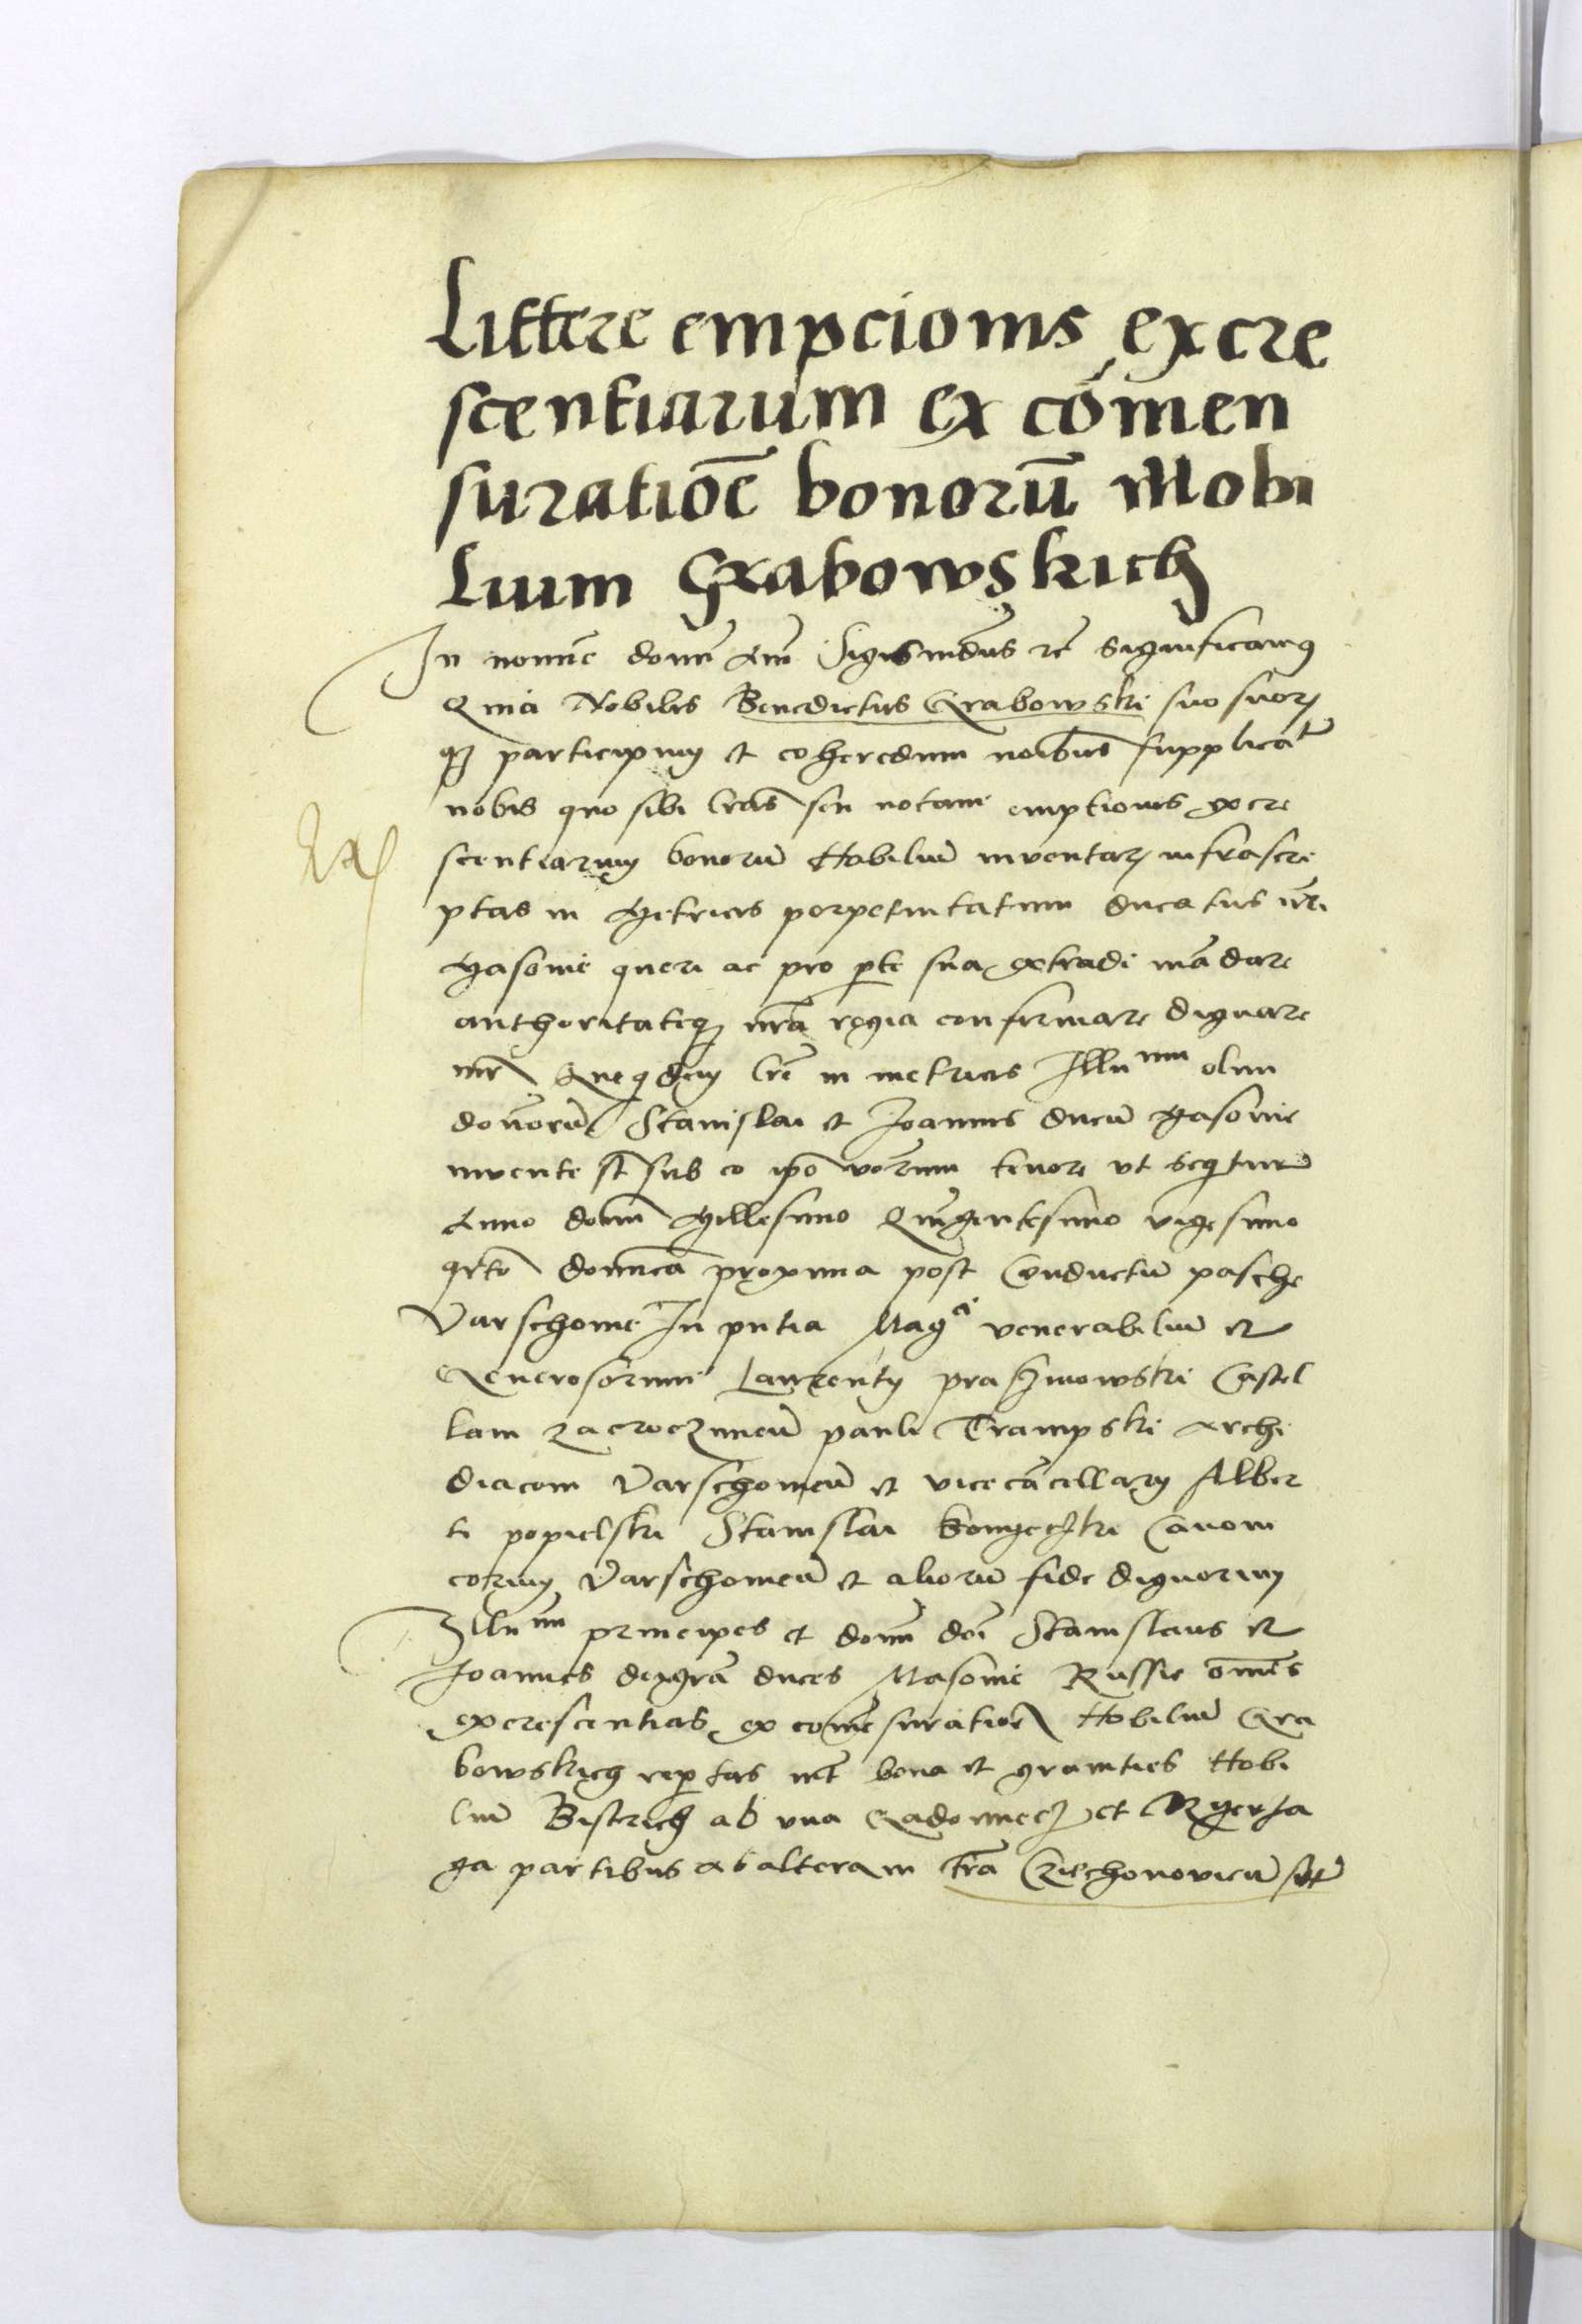 Littere empcionis excre
scentiarum ex cōmen
suratiōe bonorū Nobi
lium Grabowskich
In nomīe domī Am̄ Sigismūdus rc̄ significamꝰ
Quia Nobilis Benedictus Grabowski suo suorꝫ
qꝫ participum et coheredum noībus supplicat̄
nobis quo sibi lrās seu notam emptionis excre
scentiarum bonorū Nobiliū inventarꝫ infrascri
ptas in Metricis perpetuitatum ducatus nr̄i
Masovie queri ac pro p̄te sua extradi mādare
authoritateqꝫ nr̄a regia confirmare dignare
mr̄ Quequidem lrē in metricis Illu mm olim
domorū Stanislai et Joannis ducū Masovie
invente st̄ sub eo ip̄o verum tenore ut seqtur
Anno domī Millesimo Quīgentesimo vigesimo
qrto domīca proxima post Conductū pasche
Varschovie In pn̄tia Mag ci venerabiliū et
Generosorum Laurenty prażmowski Castel
lani zacroczimeñ pauli Trampski Archi
diaconi Varschovieñ et vicecācellary Alber
ti popielski Stanislai Canoni
corum Varschovieñ et aliorū fide dignorum
Illu mi principes et domī dnī Stanislaus et
Joannes dei gra duces Masovie Russie omēs
excrescentias ex comēsuratioē Nobiliū Gra
bowskich reptas int̄ bona et granities Nobi
liū Bistrich ab una et
partibus ab alteram tra Cziechonovieñ sit